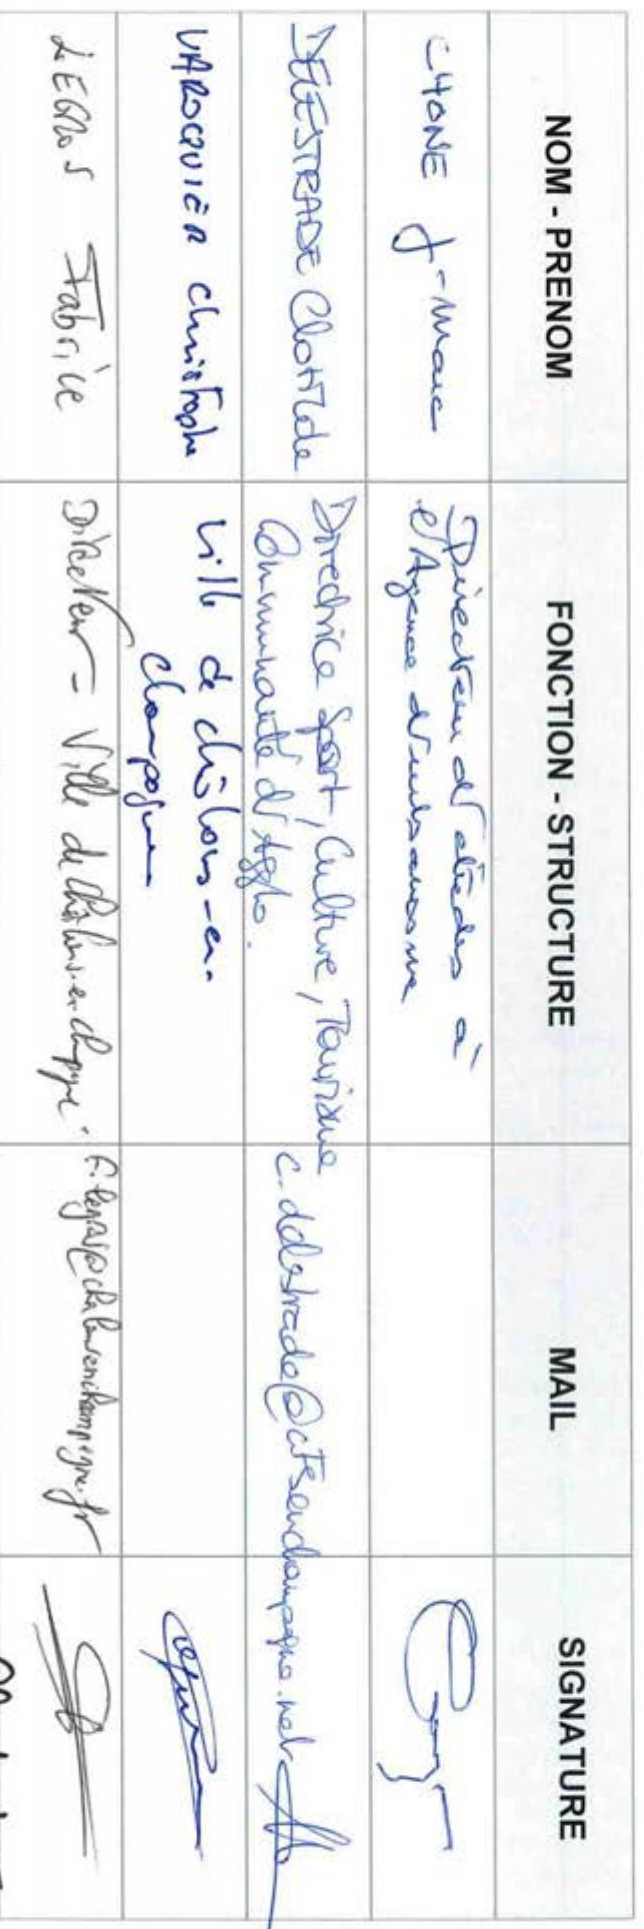 NOM - PRENOM FONCTION - STRUCTURE MAIL SIGNATURE
CHONE J-Marc Directeur d'études à
l'Agence d'urbanisme
DELESTRADE Clotilde Directrice Sport, Culture, Tourisme
Communauté d'Agglo. c.delestrade@citesenchampagne.net
VAROQUIER Christophe Ville de châlons-en-
champagne
LEGROS Fabrice Directeur - Ville de Châlons-en-champagne f.legros@chalonsenchampagne.fr